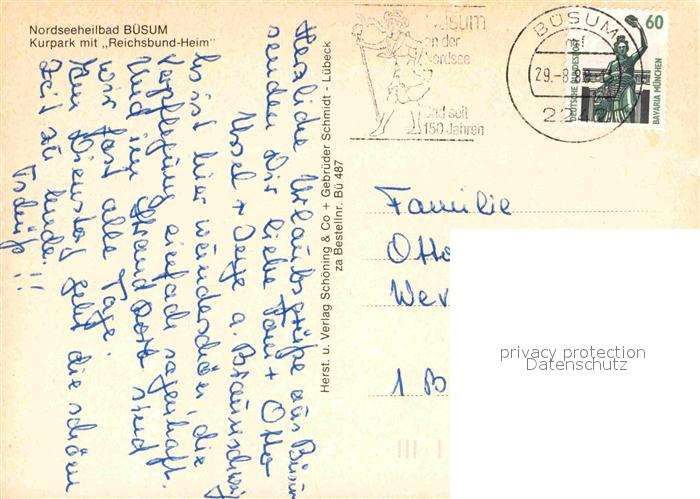 Nordseeheilbad BÜSUM
Kurpark mit „Reichsbund-Heim"
Herzliche Urlaubsgrüße aus Büsum
senden Dir liebe + Otto
Ursel + a. Braunschweig
Es ist hier wunderschön, die
Verpflegung einfach sagenhaft.
Und im Strandkorb sind
wir fast alle Tage.
Am Dienstag geht die schöne
Zeit zu Ende.
Tschüß!!!
Herst. u. Verlag Schöning & Co + Gebrüder Schmidt - Lübeck
zu Bestellnr. Bü 487
Büsum
an der
Nordsee
Bad seit
150 Jahren
BÜSUM
mf
29.-8.
22
60
DEUTSCHE BUNDESPOST
BAVARIA MÜNCHEN
Familie
Otto
Wer
1 B
privacy protection
Datenschutz